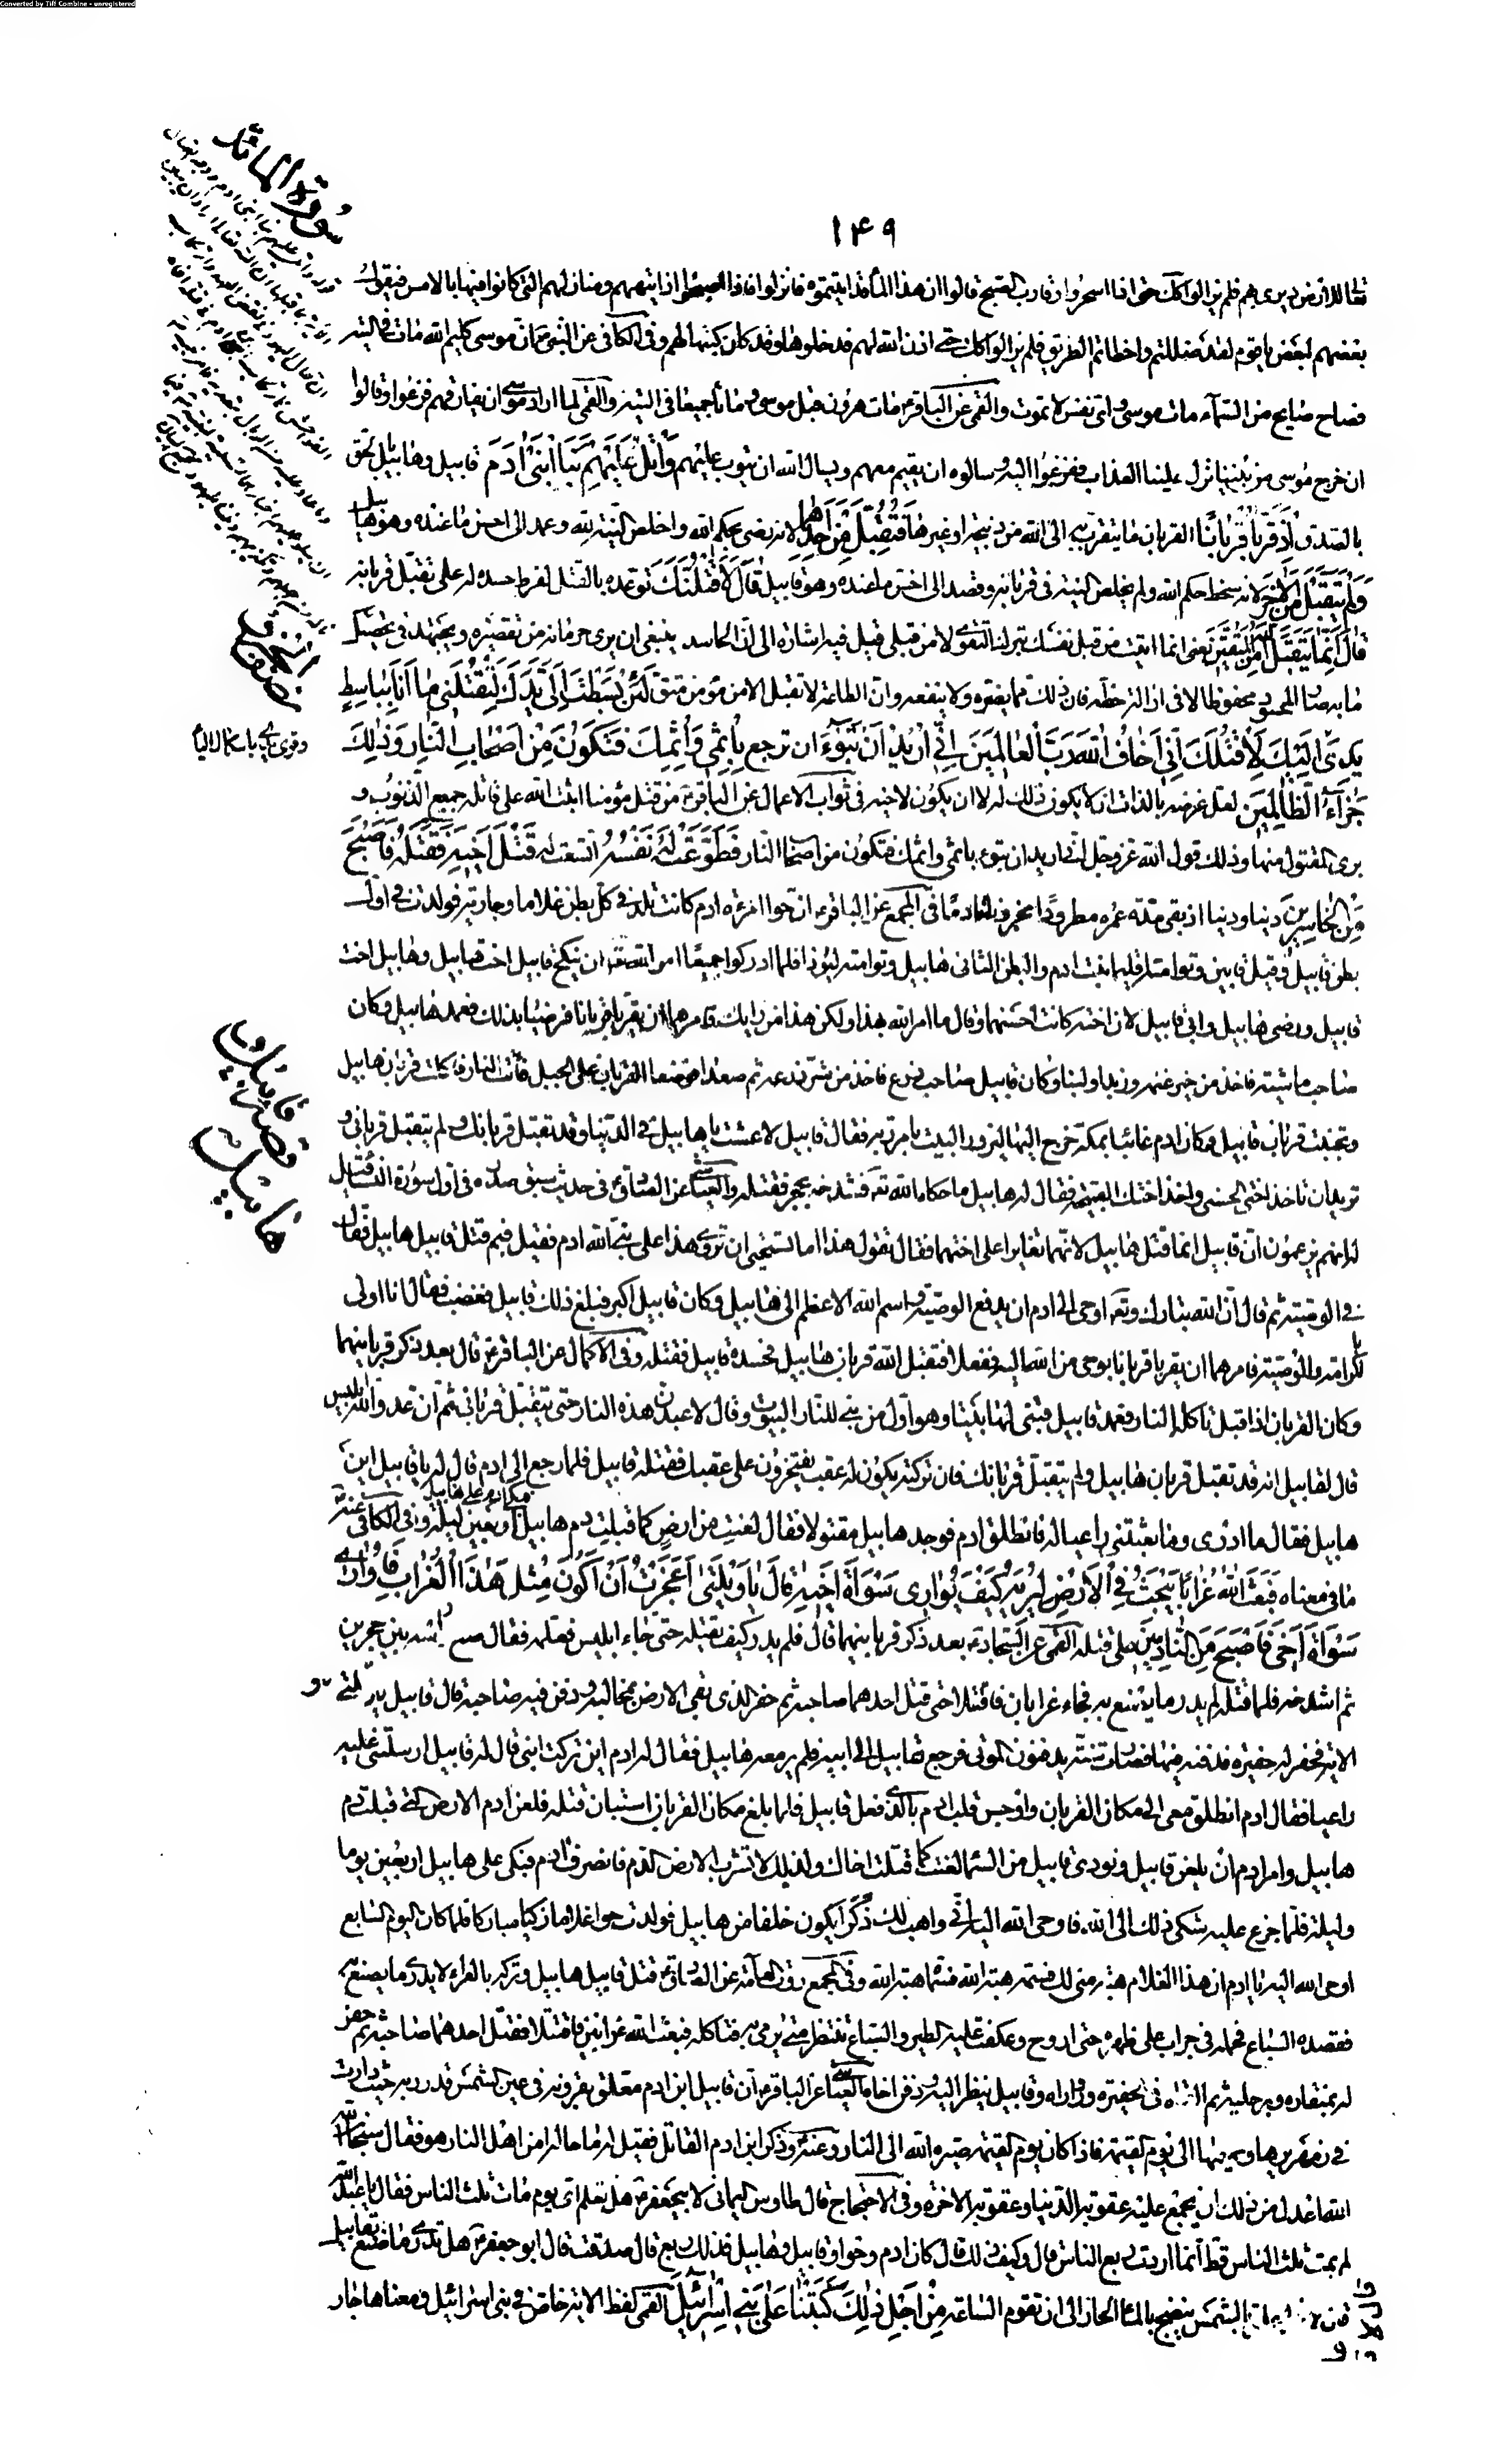 Converted by Tiff Combine - unregistered
سورة المائدة
١۴٩
تعالى للأرض ديري بهم فلم يزالوا كك حتى اذا اسحروا وقارب الصبح قالوا ان هذا الماء قد اتيتموه فانزلوا فاذا اصبحوا اذا تيههم ومنازلهم التي كانوا فيها بالامس فيقول
بعضهم لبعض يا قوم لقد ضللتم واخطاتم الطريق فلم يزالوا كك حتى اذن الله لهم فدخلوها وقد كان كتبها لهم وفي الكافي عن النبي ص مات موسى كليم الله مات في التيه
فصاح صايح من السماء مات موسى واي نفس لا تموت والقمي عن الباقر ع مات هرون قبل موسى وماتا جميعا في التيه والقمي لما اراد موسى ان يفارقهم فزعوا وقالوا
ان خرج موسى من بيننا نزل علينا العذاب ففزعوا اليه وسالوه ان يقيم معهم ويسال الله ان يتوب عليهم وَاتْلُ عَلَيْهِمْ نَبَأَ ابْنَيْ اٰدَمَ قابيل وهابيل بِالحق
بالصدق اِذْ قَرَّبَا قُرْبَانًا القربان ما يتقرب به الى الله من ذبيحة او غيرها فَتُقُبِّلَ مِنْ اَحَدِهِمَا لانه رضي بحكم الله واخلص النية لله وعمد الى احسن ما عنده وهو هابيل
وَلَمْ يُتَقَبَّلْ مِنَ الْاٰخَرِ لانه سخط حكم الله ولم يخلص النية في قربانه وقصد الى اخس ما عنده وهو قابيل قَالَ لَاَقْتُلَنَّكَ توعده بالقتل لفرط حسده له على تقبل قربانه
قَالَ اِنَّمَا يَتَقَبَّلُ اللهُ مِنَ الْمُتَّقِينَ يعني انما اتيت من قبل نفسك بترك التقوى لا من قبلي قيل فيه اشارة الى ان الحاسد ينبغي ان يرى حرمانه من تقصيره ويجتهد في تحصيل
ما به صار المحسود محفوظا لا في ازالة حظه فان ذلك مما يضره ولا ينفعه وان الطاعة لا تقبل الا من مؤمن متق لَئِنْ بَسَطْتَ اِلَيَّ يَدَكَ لِتَقْتُلَنِي مَا اَنَا بِبَاسِطٍ
يَدِيَ اِلَيْكَ لِاَقْتُلَكَ اِنِّي اَخَافُ اللهَ رَبَّ الْعَالَمِينَ اِنِّي اُرِيدُ اَنْ تَبُوءَ ان ترجع بِاِثْمِي وَاِثْمِكَ فَتَكُونَ مِنْ اَصْحَابِ النَّارِ وَذٰلِكَ
جَزَاءُ الظَّالِمِينَ لعل غرضه بالذات ان لا يكون ذلك له لا ان يكون لاخيه في ثواب الاعمال عن الباقر ع من قتل مؤمنا اثبت الله على قاتله جميع الذنوب و
برئ المقتول منها وذلك قول الله عز وجل اني اريد ان تبوء باثمي واثمك فتكون من اصحاب النار فَطَوَّعَتْ لَهُ نَفْسُهُ اتسعت له قَتْلَ اَخِيهِ فَقَتَلَهُ فَاَصْبَحَ
مِنَ الْخَاسِرِينَ دينا ودنيا اذ بقي مدة عمره مطرودا محزونا نادما في المجمع عن الباقر ع ان حوا امرءة ادم كانت تلد في كل بطن غلاما وجارية فولدت في اول
بطن قابيل وقيل قابين وتوامته اقليما بنت ادم والبطن الثاني هابيل وتوامته ليوذا فلما ادركوا جميعا امر الله تعالى ان ينكح قابيل اخت هابيل وهابيل اخت
قابيل ورضي هابيل وابى قابيل لان اخته كانت احسنهما وقال ما امر الله بهذا ولكن هذا من رايك فامرهما ان يقربا قربانا فرضيا بذلك فعمد هابيل وكان
صاحب ماشية فاخذ من خير غنمه وزبدا ولبنا وكان قابيل صاحب زرع فاخذ من شر زرعه ثم صعدا فوضعا القربان على الجبل فاتت النار فاكلت قربان هابيل
وتجنبت قربان قابيل وكان ادم غائبا بمكة خرج اليها ليزور البيت بامر ربه فقال قابيل لا عشت يا هابيل في الدنيا وقد تقبل قربانك ولم يتقبل قرباني و
تريد ان تاخذ اختي الحسنى واخذ اختك القبيحة فقال له هابيل ما حكاه الله تعالى فشدخه بحجر فقتله والعياشي عن الصادق ع في حديث سبق صدره في اول سورة النساء قيل
له انهم يزعمون ان قابيل انما قتل هابيل لانهما تغايرا على اختهما فقال تقول هذا اما تستحيي ان تروي هذا على نبي الله ادم فقيل فيم قتل قابيل هابيل فقال
في الوصية ثم قال ان الله تبارك وتعالى اوحى الى ادم ان يدفع الوصية واسم الله الاعظم الى هابيل وكان قابيل اكبر فبلغ ذلك قابيل فغضب فقال انا اولى
بالكرامة والوصية فامرهما ان يقربا قربانا بوحي من الله اليه ففعلا فتقبل الله قربان هابيل فحسده قابيل فقتله وفي الاكمال عن الباقر ع قال بعد ذكر قربانهما
وكان القربان اذا قبل تاكله النار فعمد قابيل فبنى لها بيتا وهو اول من بنى للنار البيوت وقال لاعبدن هذه النار حتى يتقبل قرباني ثم ان عدو الله ابليس
قال لقابيل انه قد تقبل قربان هابيل ولم يتقبل قربانك فان تركته يكون له عقب يفتخرون على عقبك فقتله قابيل فلما رجع الى ادم قال له يا قابيل اين
هابيل فقال ما ادري وما بعثتني راعيا له فانطلق ادم فوجد هابيل مقتولا فقال لعنت من ارض كما قبلت دم هابيل فبكى ادم على هابيل اربعين ليلة وفي الكافي عنه ع
ما في معناه فَبَعَثَ اللهُ غُرَابًا يَبْحَثُ فِي الْاَرْضِ لِيُرِيَهُ كَيْفَ يُوَارِي سَوْاَةَ اَخِيهِ قَالَ يَا وَيْلَتٰى اَعَجَزْتُ اَنْ اَكُونَ مِثْلَ هٰذَا الْغُرَابِ فَاُوَارِيَ
سَوْاَةَ اَخِي فَاَصْبَحَ مِنَ النَّادِمِينَ على قتله القمي عن السجاد ع بعد ذكر قربانهما قال فلم يدر كيف يقتله حتى جاء ابليس فعلمه فقال ضع راسه بين حجرين
ثم اشدخه فلما قتله لم يدر ما يصنع به فجاء غرابان فاقتتلا حتى قتل احدهما صاحبه ثم حفر الذي بقي الارض بمخالبه ودفن فيه صاحبه قال قابيل يا ويلتى
الاية فحفر له حفيرة فدفنه فيها فصارت سنة يدفنون الموتى فرجع قابيل الى ابيه فلم ير معه هابيل فقال له ادم اين تركت ابني قال له قابيل ارسلتني عليه
راعيا فقال ادم انطلق معي الى مكان القربان واوجس قلب ادم بالذي فعل قابيل فلما بلغ مكان القربان استبان قتله فلعن ادم الارض التي قبلت دم
هابيل وامر ادم ان يلعن قابيل ونودي قابيل من السماء لعنت كما قتلت اخاك ولذلك لا تشرب الارض الدم فانصرف ادم فبكى على هابيل اربعين يوما
وليلة فلما جزع عليه شكى ذلك الى الله فاوحى الله اليه اني واهب لك ذكرا يكون خلفا من هابيل فولدت حوا غلاما زكيا مباركا فلما كان اليوم السابع
اوحى الله اليه يا ادم ان هذا الغلام هبة مني لك فسمه هبة الله فسماه هبة الله وفي المجمع روت العامة عن الصادق ع قتل قابيل هابيل وتركه بالعراء لا يدري ما يصنع به
فقصده السباع فحمله في جراب على ظهره حتى اروح وعكفت عليه الطير والسباع تنتظر متى يرمي به فتاكله فبعث الله غرابين فاقتتلا فقتل احدهما صاحبه ثم حفر
له بمنقاره وبرجليه ثم القاه في الحفيرة وواراه وقابيل ينظر اليه فدفن اخاه العياشي عن الباقر ع ان قابيل ابن ادم معلق بقرونه في عين الشمس تدور به حيث دارت
في زمهريرها وحميمها الى يوم القيمة فاذا كان يوم القيمة صيره الله الى النار وعنه ع وذكر ابن ادم القاتل فقيل له ما حاله امن اهل النار هو فقال سبحان الله
الله اعدل من ذلك ان يجمع عليه عقوبة الدنيا وعقوبة الاخرة وفي الاحتجاج قال طاوس اليماني لابي جعفر ع هل تعلم اي يوم مات ثلث الناس فقال يا عبد الله
لم يمت ثلث الناس قط انما اردت ربع الناس قال وكيف ذلك قال كان ادم وحوا وقابيل وهابيل فذلك ربع قال صدقت قال ابو جعفر ع هل تدري ما صنع بقابيل
قال لا بالشمس ينضح بالماء الحار الى ان تقوم الساعة مِنْ اَجْلِ ذٰلِكَ كَتَبْنَا عَلٰى بَنِي اِسْرَائِيلَ القمي لفظ الاية خاص في بني اسرائيل ومعناها جار
الجزء
نصف
وقرئ يدي باسكان الياء
قابيل و
قصة
هابيل